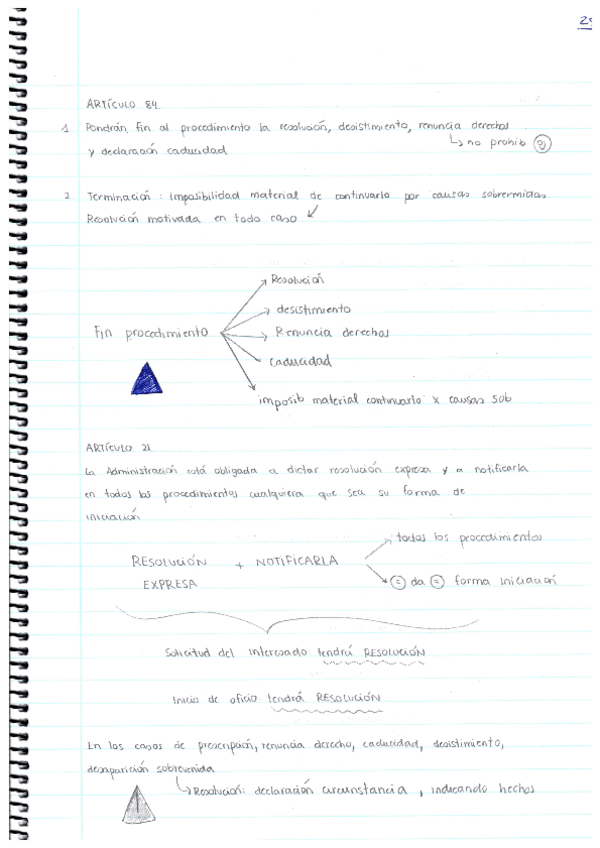 29
ARTÍCULO 84.
1. Pondrán fin al procedimiento la resolución, desistimiento, renuncia derechos
↳ no prohib
y declaración caducidad
2. Terminación: imposibilidad material de continuarlo por causas sobrevenidas
Resolución motivada en todo caso
Resolución
desistimiento
Fin procedimiento
Renuncia derechos
caducidad
imposib material continuarlo x causas sob
ARTÍCULO 21
La Administración está obligada a dictar resolución expresa y a notificarla
en todos los procedimientos cualquiera que sea su forma de
iniciación
todos los procedimientos
RESOLUCIÓN + NOTIFICARLA
EXPRESA
= da = forma iniciación
Solicitud del interesado tendrá RESOLUCIÓN
Inicio de oficio tendrá RESOLUCIÓN
En los casos de prescripción, renuncia derecho, caducidad, desistimiento,
desaparición sobrevenida
↳ Resolución: declaración circunstancia, indicando hechos